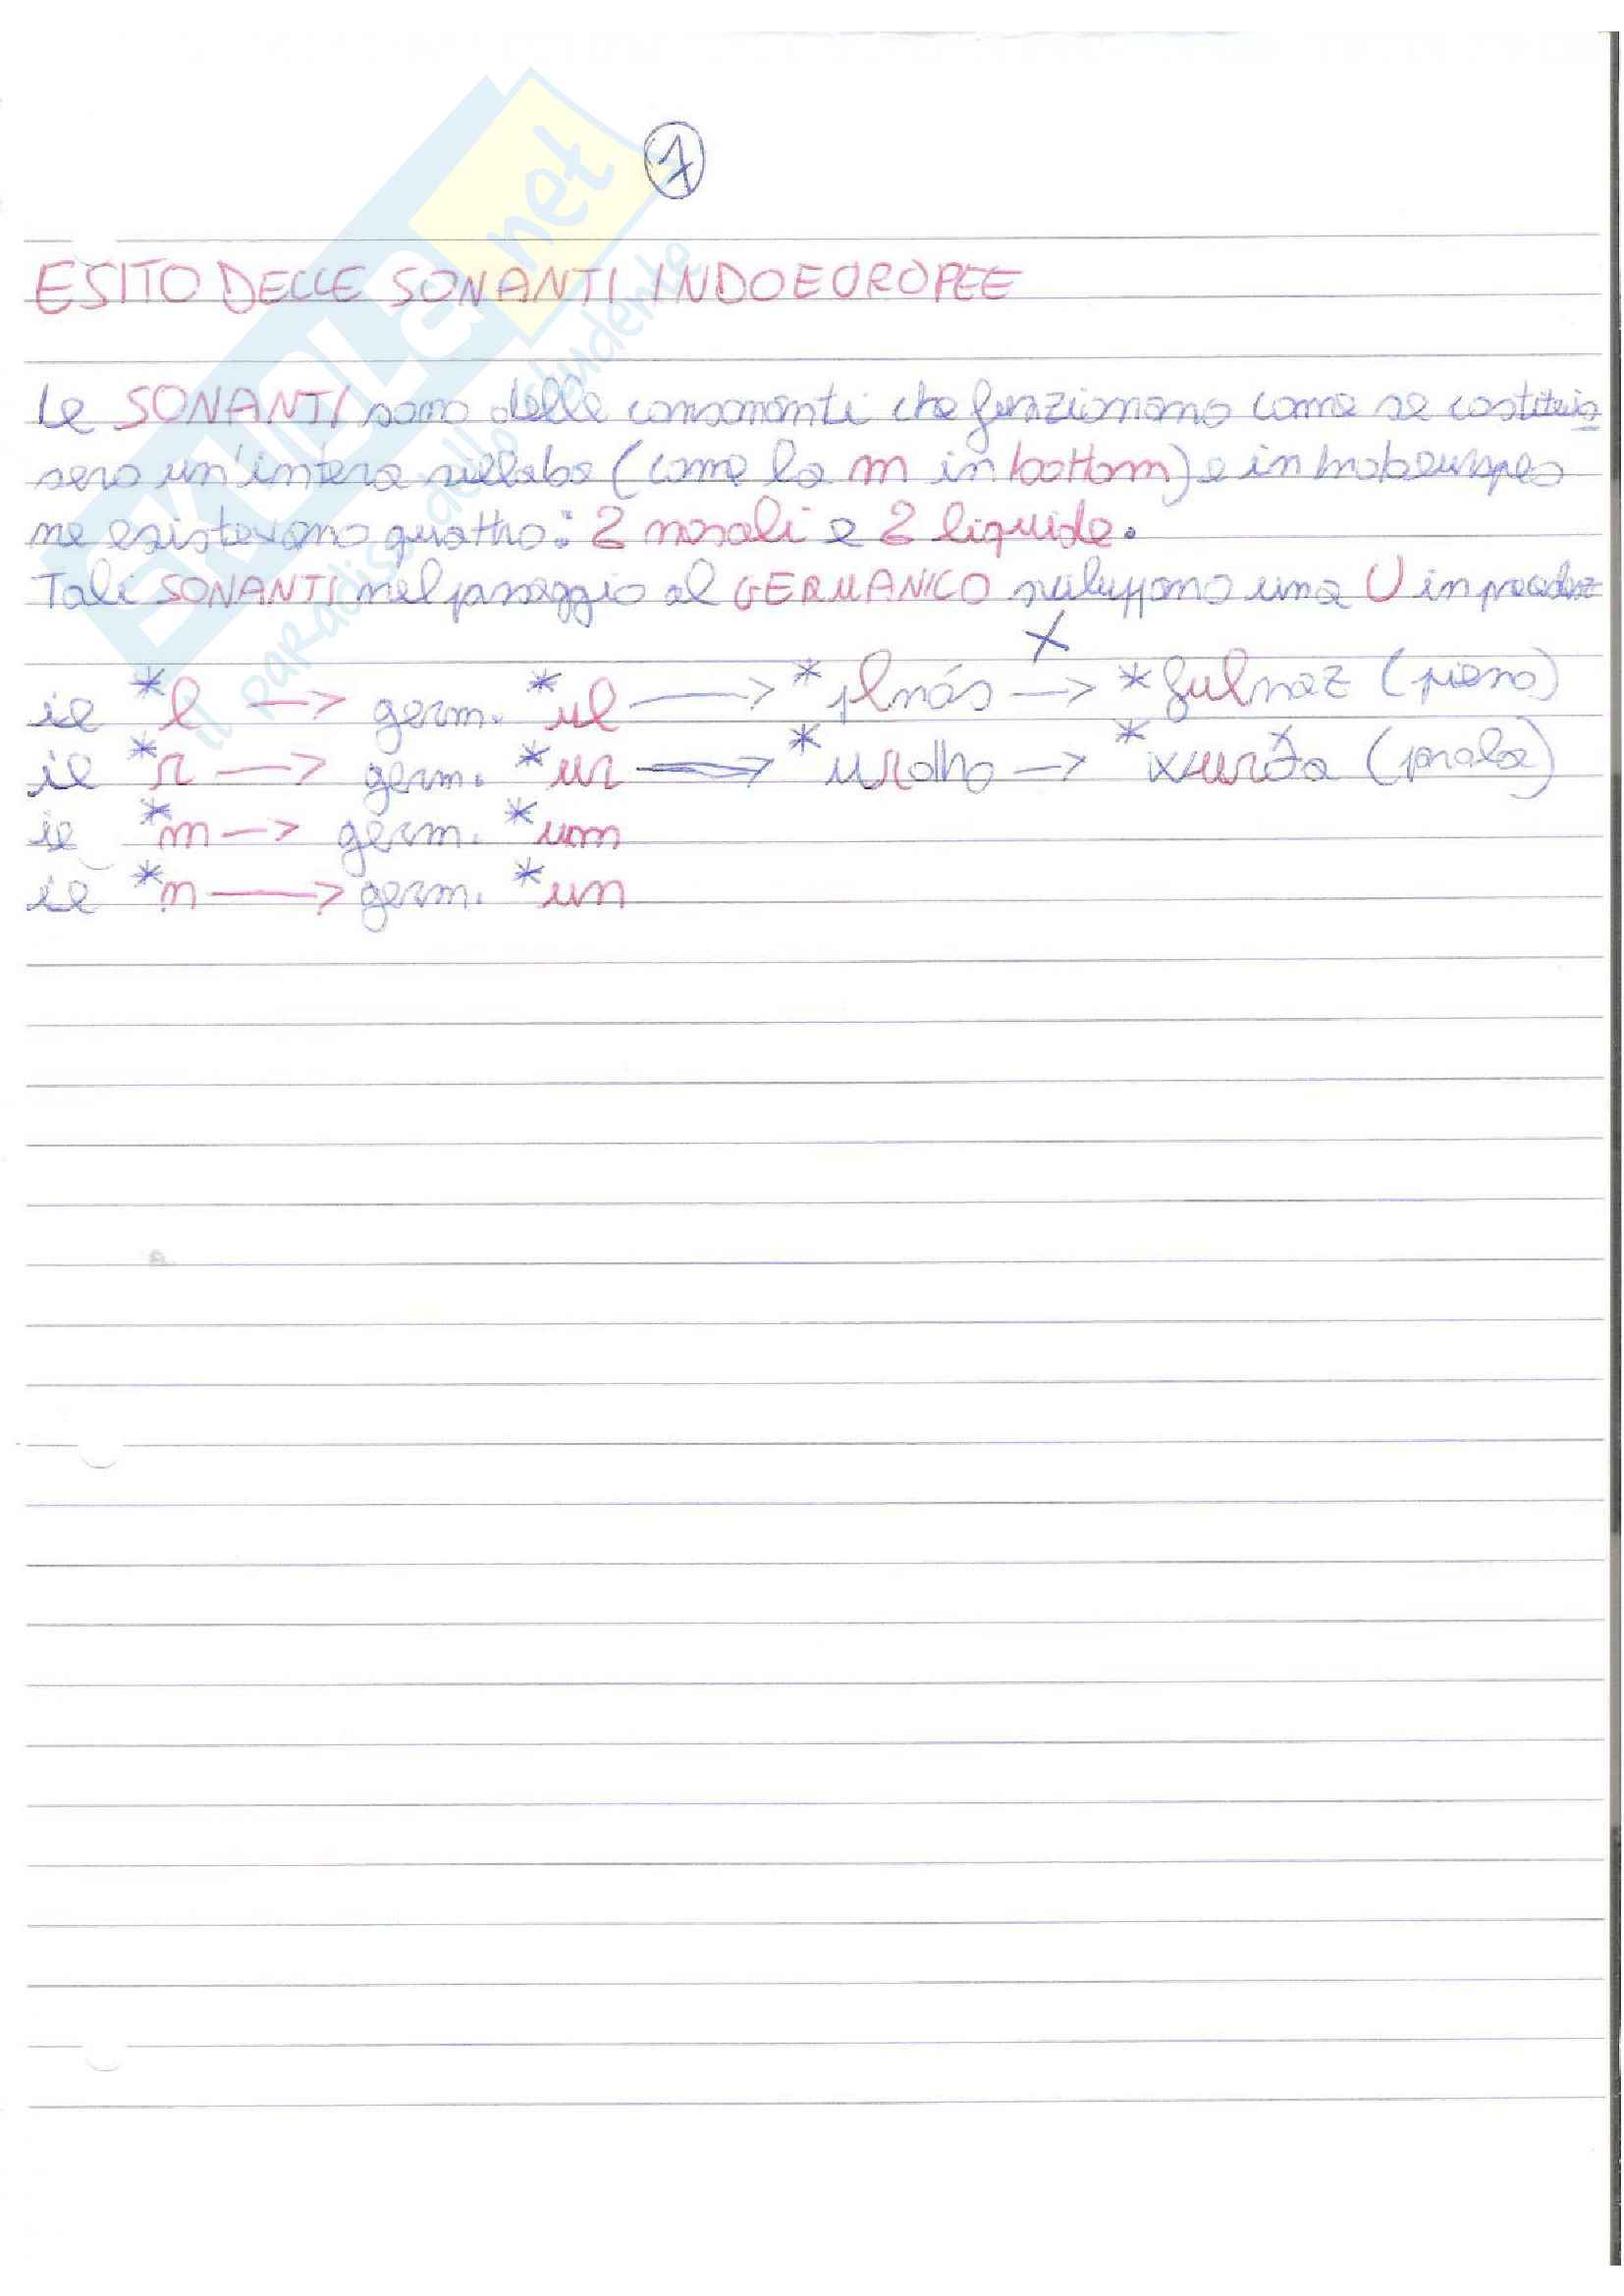 7
ESITO DELLE SONANTI INDOEUROPEE
Le SONANTI sono delle consonanti che funzionano come se costituis
sero un'intera sillaba (come la m in bottom) e in indoeuropeo
ne esistevano quattro: 2 nasali e 2 liquide.
Tali SONANTI nel passaggio al GERMANICO sviluppano una U in precedenz
ie *l → germ. *ul → *plnós → *fulnaz (pieno)
ie *r → germ. *ur → *urdho → * (parola)
ie *m → germ. *um
ie *n → germ. *un
SKUOLA.net
il paradiso dello studente